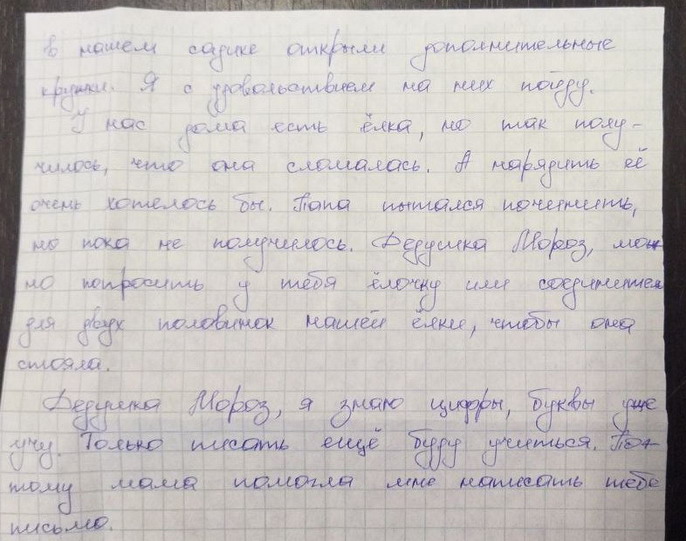 В нашем садике открыли дополнительные
кружки. Я с удовольствием на них пойду.
У нас дома есть ёлка, но так полу-
чилось, что она сломалась. А нарядить её
очень хотелось бы. Папа пытался починить,
но пока не получилось. Дедушка Мороз, мож-
но попросить у тебя ёлочку или соединитель
для двух половинок нашей ёлки, чтобы она
стояла.
Дедушка Мороз, я знаю цифры, буквы уже
учу. Только писать ещё буду учиться. Поэ-
тому мама помогла мне написать тебе
письмо.